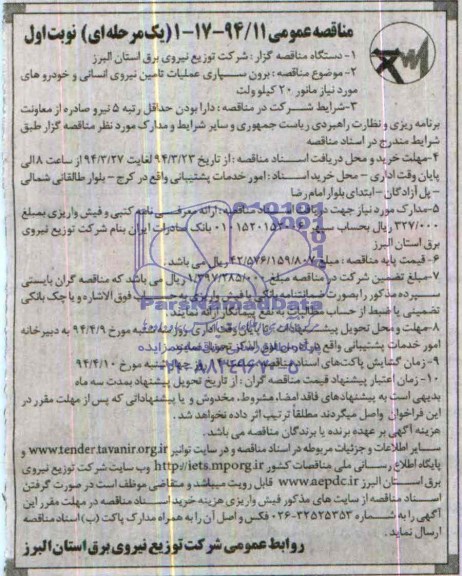 مناقصه عمومی ۹۴/۱۱-۱۷-۱ (یک مرحله ای) نوبت اول
۱- دستگاه مناقصه گزار : شرکت توزیع نیروی برق استان البرز
۲- موضوع مناقصه : برون سپاری عملیات تامین نیروی انسانی و خودرو های
مورد نیاز مانور ۲۰ کیلو ولت
۳- شرایط شرکت در مناقصه : دارا بودن حداقل رتبه ۵ نیرو صادره از معاونت
برنامه ریزی و نظارت راهبردی ریاست جمهوری و سایر شرایط و مدارک مورد نظر مناقصه گزار طبق
شرایط مندرج در اسناد مناقصه
۴- مهلت خرید و محل دریافت اسناد مناقصه : از تاریخ ۹۴/۳/۲۳ لغایت ۹۴/۳/۲۷ از ساعت ۸ الی
پایان وقت اداری - محل خرید اسناد : امور خدمات پشتیبانی واقع در کرج - بلوار طالقانی شمالی
- پل آزادگان - ابتدای بلوار امام رضا
۵- مدارک مورد نیاز جهت دریافت اسناد مناقصه : ارائه معرفی نامه کتبی و فیش واریزی بمبلغ
۳۲۷/۰۰۰ ریال بحساب سپهر بانک صادرات ایران بنام شرکت توزیع نیروی
برق استان البرز
۶- قیمت پایه مناقصه : مبلغ ۴۲/۵۷۶/۱۵۹/۸۰۷ ریال می باشد.
۷- مبلغ تضمین شرکت در مناقصه مبلغ ۱/۳۹۷/۳۸۵/۰۰۰ ریال می باشد که مناقصه گران بایستی
سپرده مذکور را بصورت ضمانتنامه بانکی یا فیش واریزی به حساب فوق الاشاره و یا چک بانکی
تضمینی یا ضبط از حساب مطالبات به نفع پیمانکار ارائه نمایند
۸- مهلت و محل تحویل پیشنهادات : تا پایان وقت اداری روز سه شنبه مورخ ۹۴/۴/۹ به دبیرخانه
امور خدمات پشتیبانی واقع در آدرس فوق الذکر تحویل نمایند
۹- زمان گشایش پاکت های اسناد مناقصه : چهارشنبه مورخ ۹۴/۴/۱۰
۱۰- زمان اعتبار پیشنهاد قیمت مناقصه گران : از تاریخ تحویل پیشنهاد بمدت سه ماه
بدیهی است به پیشنهادهای فاقد امضاء، مشروط، مخدوش و یا پیشنهاداتی که پس از مهلت مقرر در
این فراخوان واصل میگردند مطلقاً ترتیب اثر داده نخواهد شد.
هزینه آگهی بر عهده برنده یا برندگان مناقصه می باشد.
سایر اطلاعات و جزئیات مربوطه در اسناد مناقصه و در سایت توانیر www.tender.tavanir.org.ir و
پایگاه اطلاع رسانی ملی مناقصات کشور http://iets.mporg.ir وب سایت شرکت توزیع نیروی
برق استان البرز www.aepdc.ir قابل رویت میباشد و متقاضی موظف است در صورت گرفتن
اسناد مناقصه از سایت های مذکور فیش واریزی هزینه خرید اسناد مناقصه در مهلت مقرر این
آگهی را به شماره ۳۲۵۲۵۳۵۳-۰۲۶ فکس و اصل آن را به همراه مدارک پاکت (ب) اسناد مناقصه
ارسال نماید.
روابط عمومی شرکت توزیع نیروی برق استان البرز